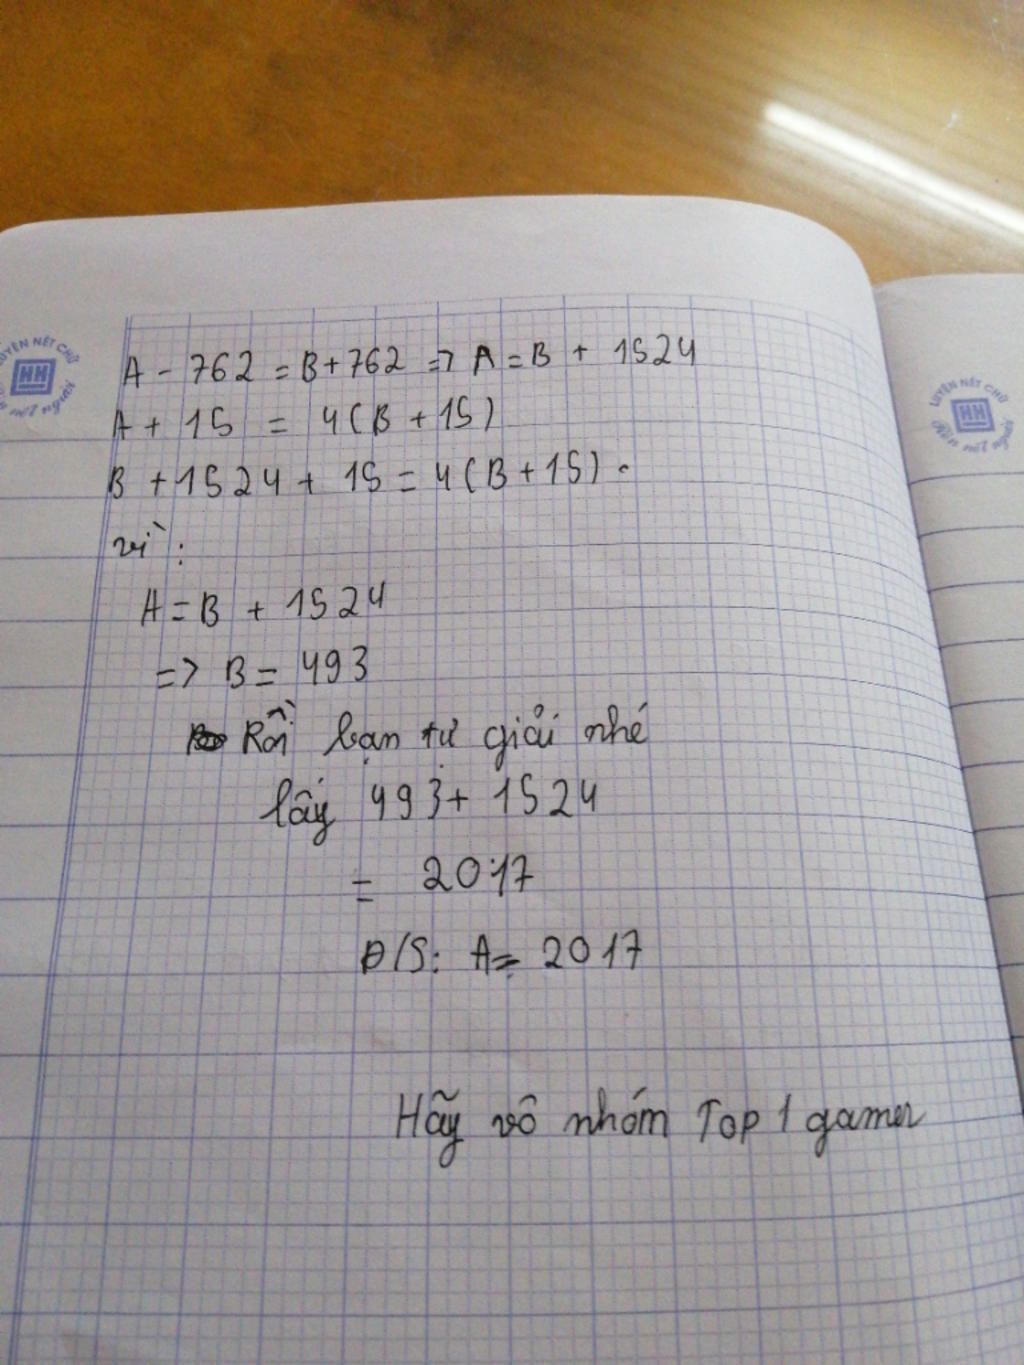 A - 762 = B + 762 => A = B + 1524
A + 15 = 4(B + 15)
B + 1524 + 15 = 4(B + 15).
vì:
A = B + 1524
=> B = 493
Rồi bạn tự giải nhé
lấy 493 + 1524
= 2017
Đ/S: A = 2017
Hãy vô nhóm Top 1 gamer
LUYỆN NÉT CHỮ
HH
nết người
LUYỆN NÉT CHỮ
HH
Rèn nết người